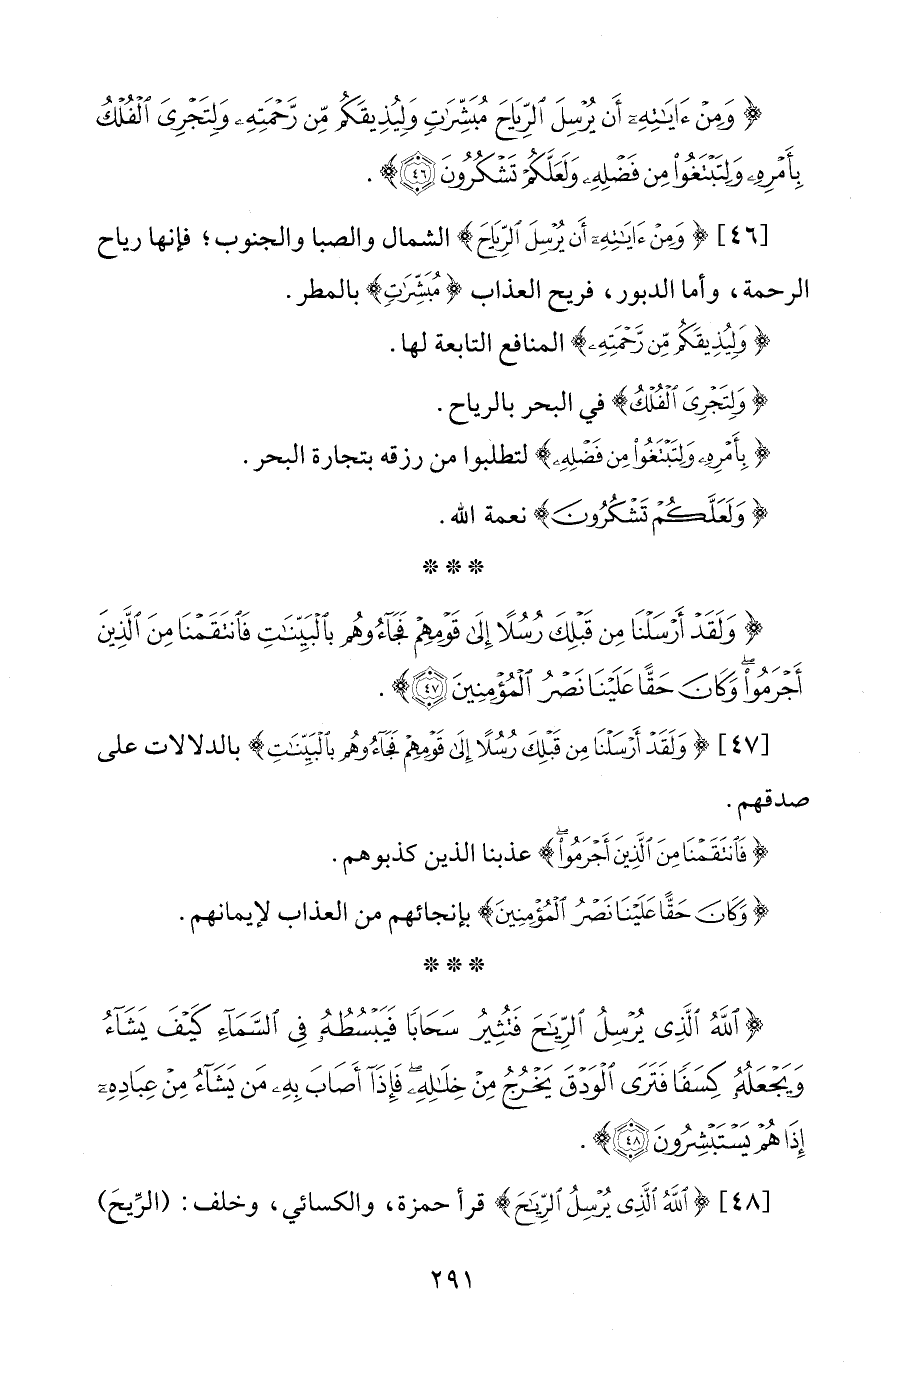 ﴿ وَمِنْ ءَايَـٰتِهِۦٓ أَن يُرْسِلَ ٱلرِّيَاحَ مُبَشِّرَٰتٍ وَلِيُذِيقَكُم مِّن رَّحْمَتِهِۦ وَلِتَجْرِىَ ٱلْفُلْكُ
بِأَمْرِهِۦ وَلِتَبْتَغُوا۟ مِن فَضْلِهِۦ وَلَعَلَّكُمْ تَشْكُرُونَ ٤٦ ﴾ .
[٤٦] ﴿ وَمِنْ ءَايَـٰتِهِۦٓ أَن يُرْسِلَ ٱلرِّيَاحَ ﴾ الشمال والصبا والجنوب؛ فإنها رياح
الرحمة، وأما الدبور، فريح العذاب ﴿ مُبَشِّرَٰتٍ ﴾ بالمطر.
﴿ وَلِيُذِيقَكُم مِّن رَّحْمَتِهِۦ ﴾ المنافع التابعة لها.
﴿ وَلِتَجْرِىَ ٱلْفُلْكُ ﴾ في البحر بالرياح.
﴿ بِأَمْرِهِۦ وَلِتَبْتَغُوا۟ مِن فَضْلِهِۦ ﴾ لتطلبوا من رزقه بتجارة البحر.
﴿ وَلَعَلَّكُمْ تَشْكُرُونَ ﴾ نعمة الله.
* * *
﴿ وَلَقَدْ أَرْسَلْنَا مِن قَبْلِكَ رُسُلًا إِلَىٰ قَوْمِهِمْ فَجَآءُوهُم بِٱلْبَيِّنَـٰتِ فَٱنتَقَمْنَا مِنَ ٱلَّذِينَ
أَجْرَمُوا۟ ۖ وَكَانَ حَقًّا عَلَيْنَا نَصْرُ ٱلْمُؤْمِنِينَ ٤٧ ﴾ .
[٤٧] ﴿ وَلَقَدْ أَرْسَلْنَا مِن قَبْلِكَ رُسُلًا إِلَىٰ قَوْمِهِمْ فَجَآءُوهُم بِٱلْبَيِّنَـٰتِ ﴾ بالدلالات على
صدقهم.
﴿ فَٱنتَقَمْنَا مِنَ ٱلَّذِينَ أَجْرَمُوا۟ ۖ ﴾ عذبنا الذين كذبوهم.
﴿ وَكَانَ حَقًّا عَلَيْنَا نَصْرُ ٱلْمُؤْمِنِينَ ﴾ بإنجائهم من العذاب لإيمانهم.
* * *
﴿ ٱللَّهُ ٱلَّذِى يُرْسِلُ ٱلرِّيَـٰحَ فَتُثِيرُ سَحَابًا فَيَبْسُطُهُۥ فِى ٱلسَّمَآءِ كَيْفَ يَشَآءُ
وَيَجْعَلُهُۥ كِسَفًا فَتَرَى ٱلْوَدْقَ يَخْرُجُ مِنْ خِلَـٰلِهِۦ ۖ فَإِذَآ أَصَابَ بِهِۦ مَن يَشَآءُ مِنْ عِبَادِهِۦٓ
إِذَا هُمْ يَسْتَبْشِرُونَ ٤٨ ﴾ .
[٤٨] ﴿ ٱللَّهُ ٱلَّذِى يُرْسِلُ ٱلرِّيَـٰحَ ﴾ قرأ حمزة، والكسائي، وخلف: (الرِّيحَ)
٢٩١